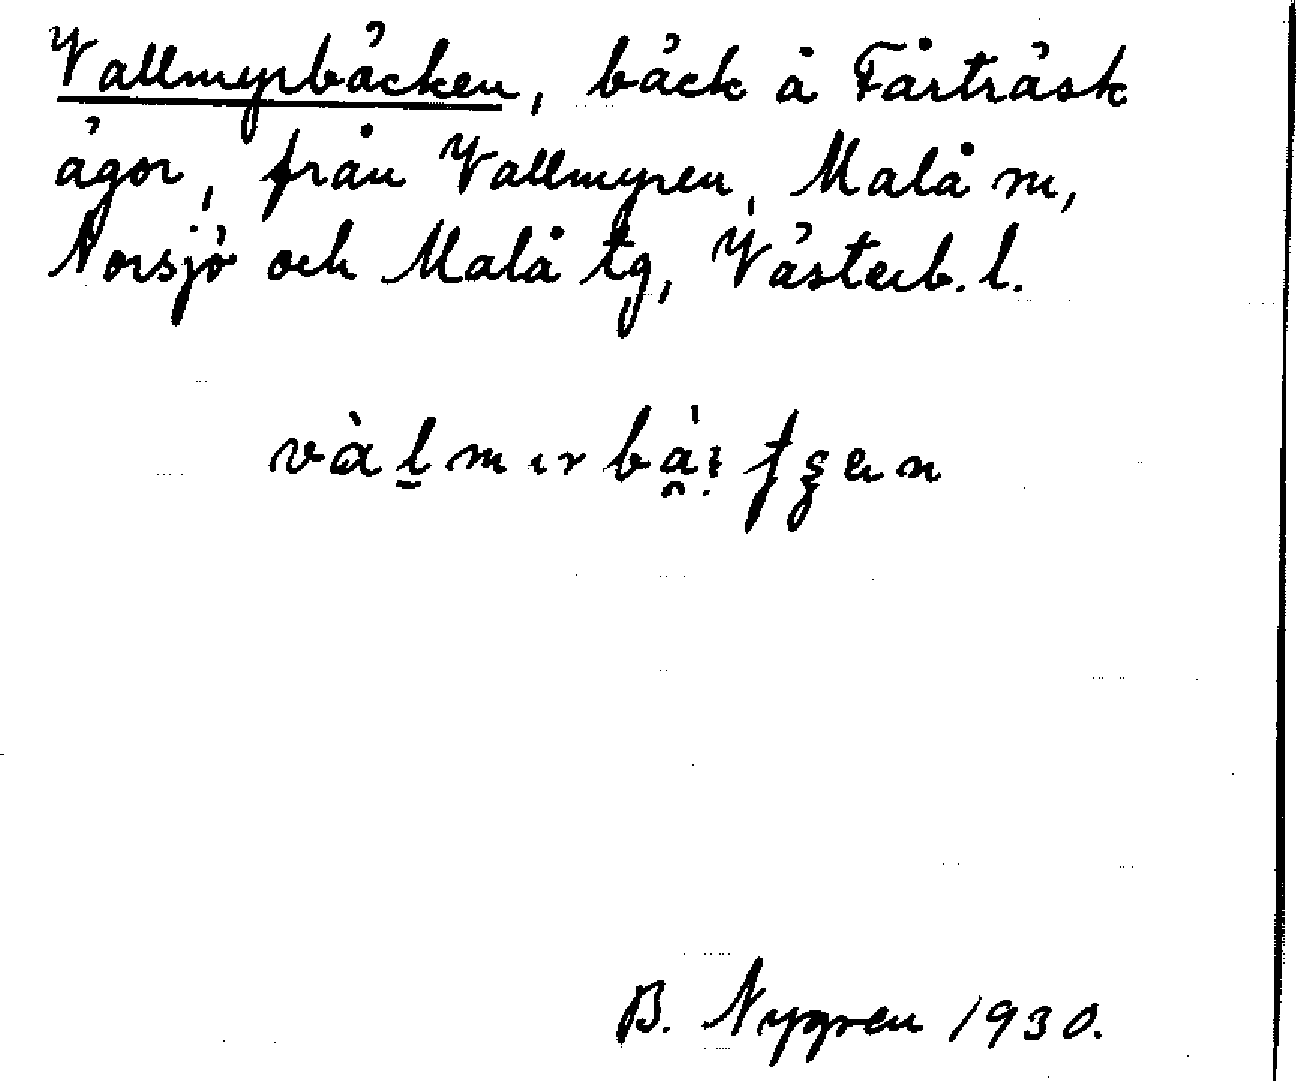 Vallmyrbäcken, bäck å Fårträsk
ägor, från Vallmyren, Malå m,
Norsjö och Malå tg, Västerb. l.
B. Nygren 1930.